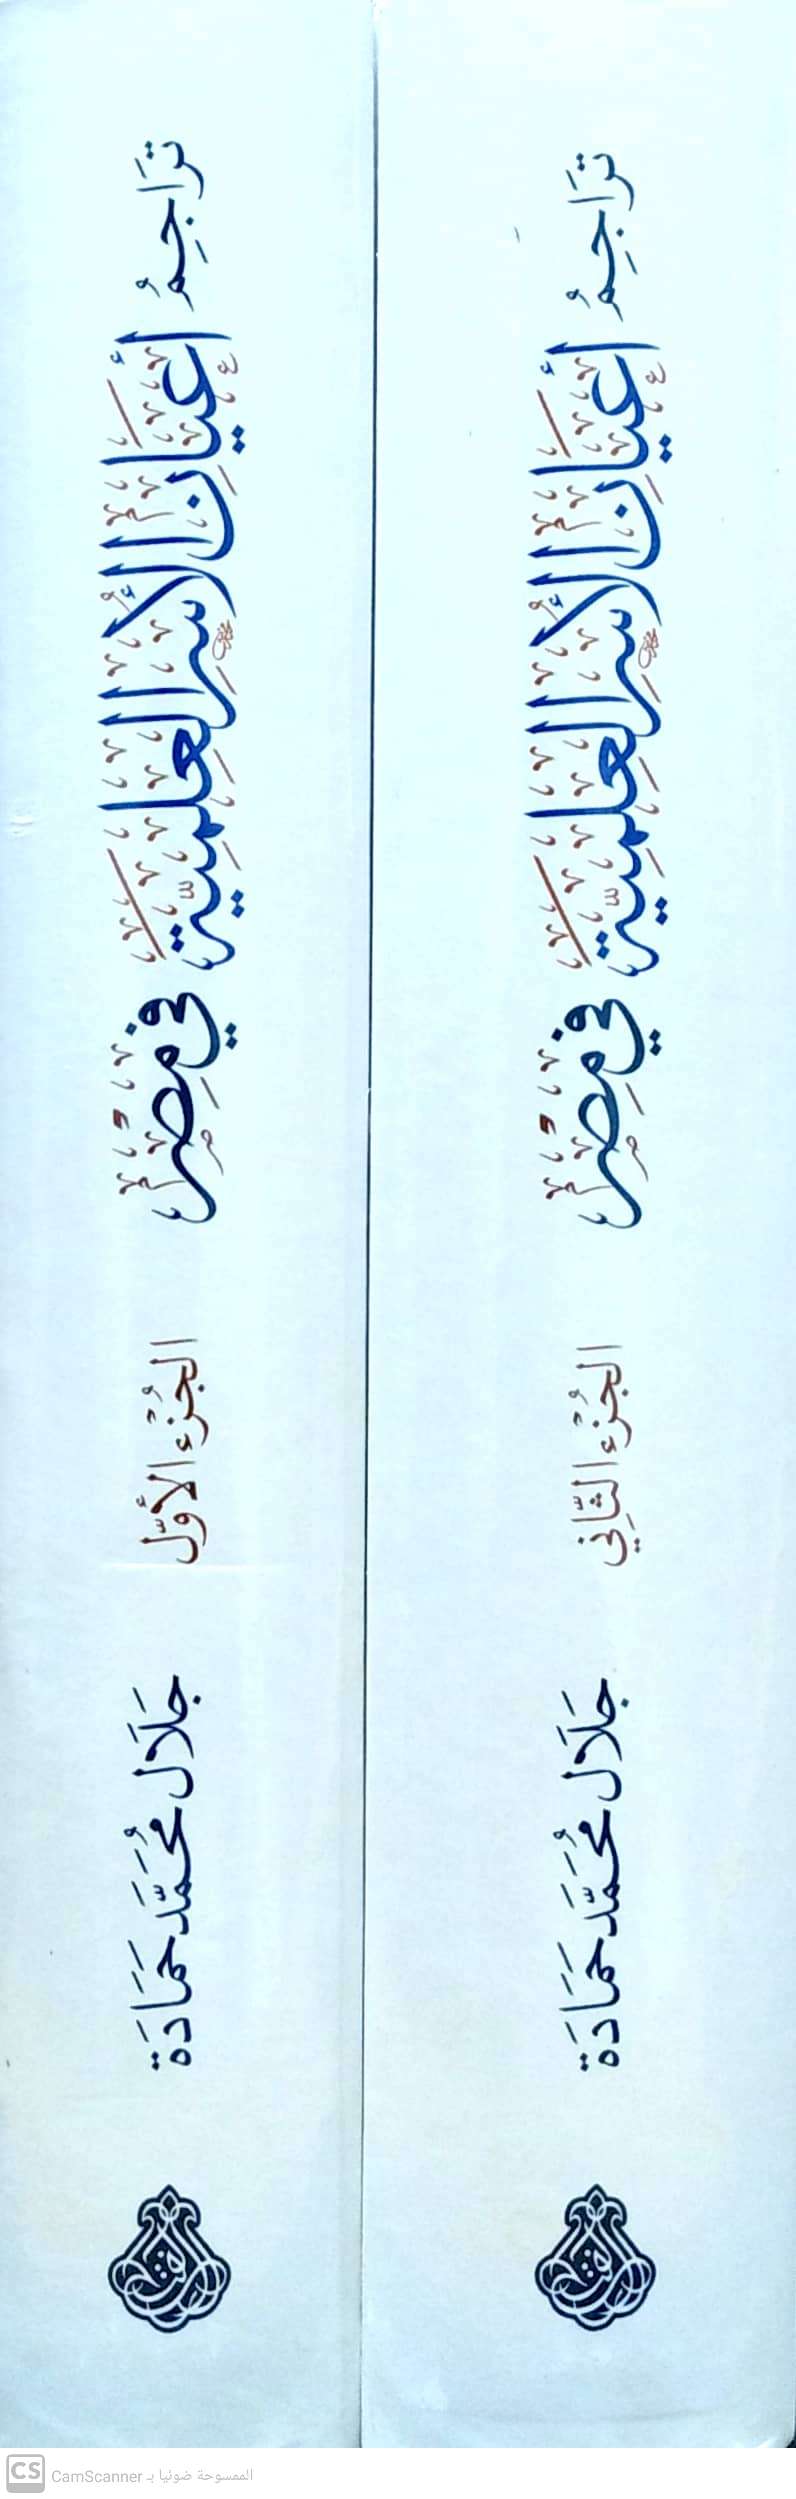 تَرَاجِمُ
أَعْيَانِ الأُسَرِ العِلْمِيَّةِ
فِي مِصْرَ
الجُزْءُ الأَوَّل
جَلَال مُحَمَّد حَمَادَة
تَرَاجِمُ
أَعْيَانِ الأُسَرِ العِلْمِيَّةِ
فِي مِصْرَ
الجُزْءُ الثَّانِي
جَلَال مُحَمَّد حَمَادَة
CS CamScanner الممسوحة ضوئيا بـ